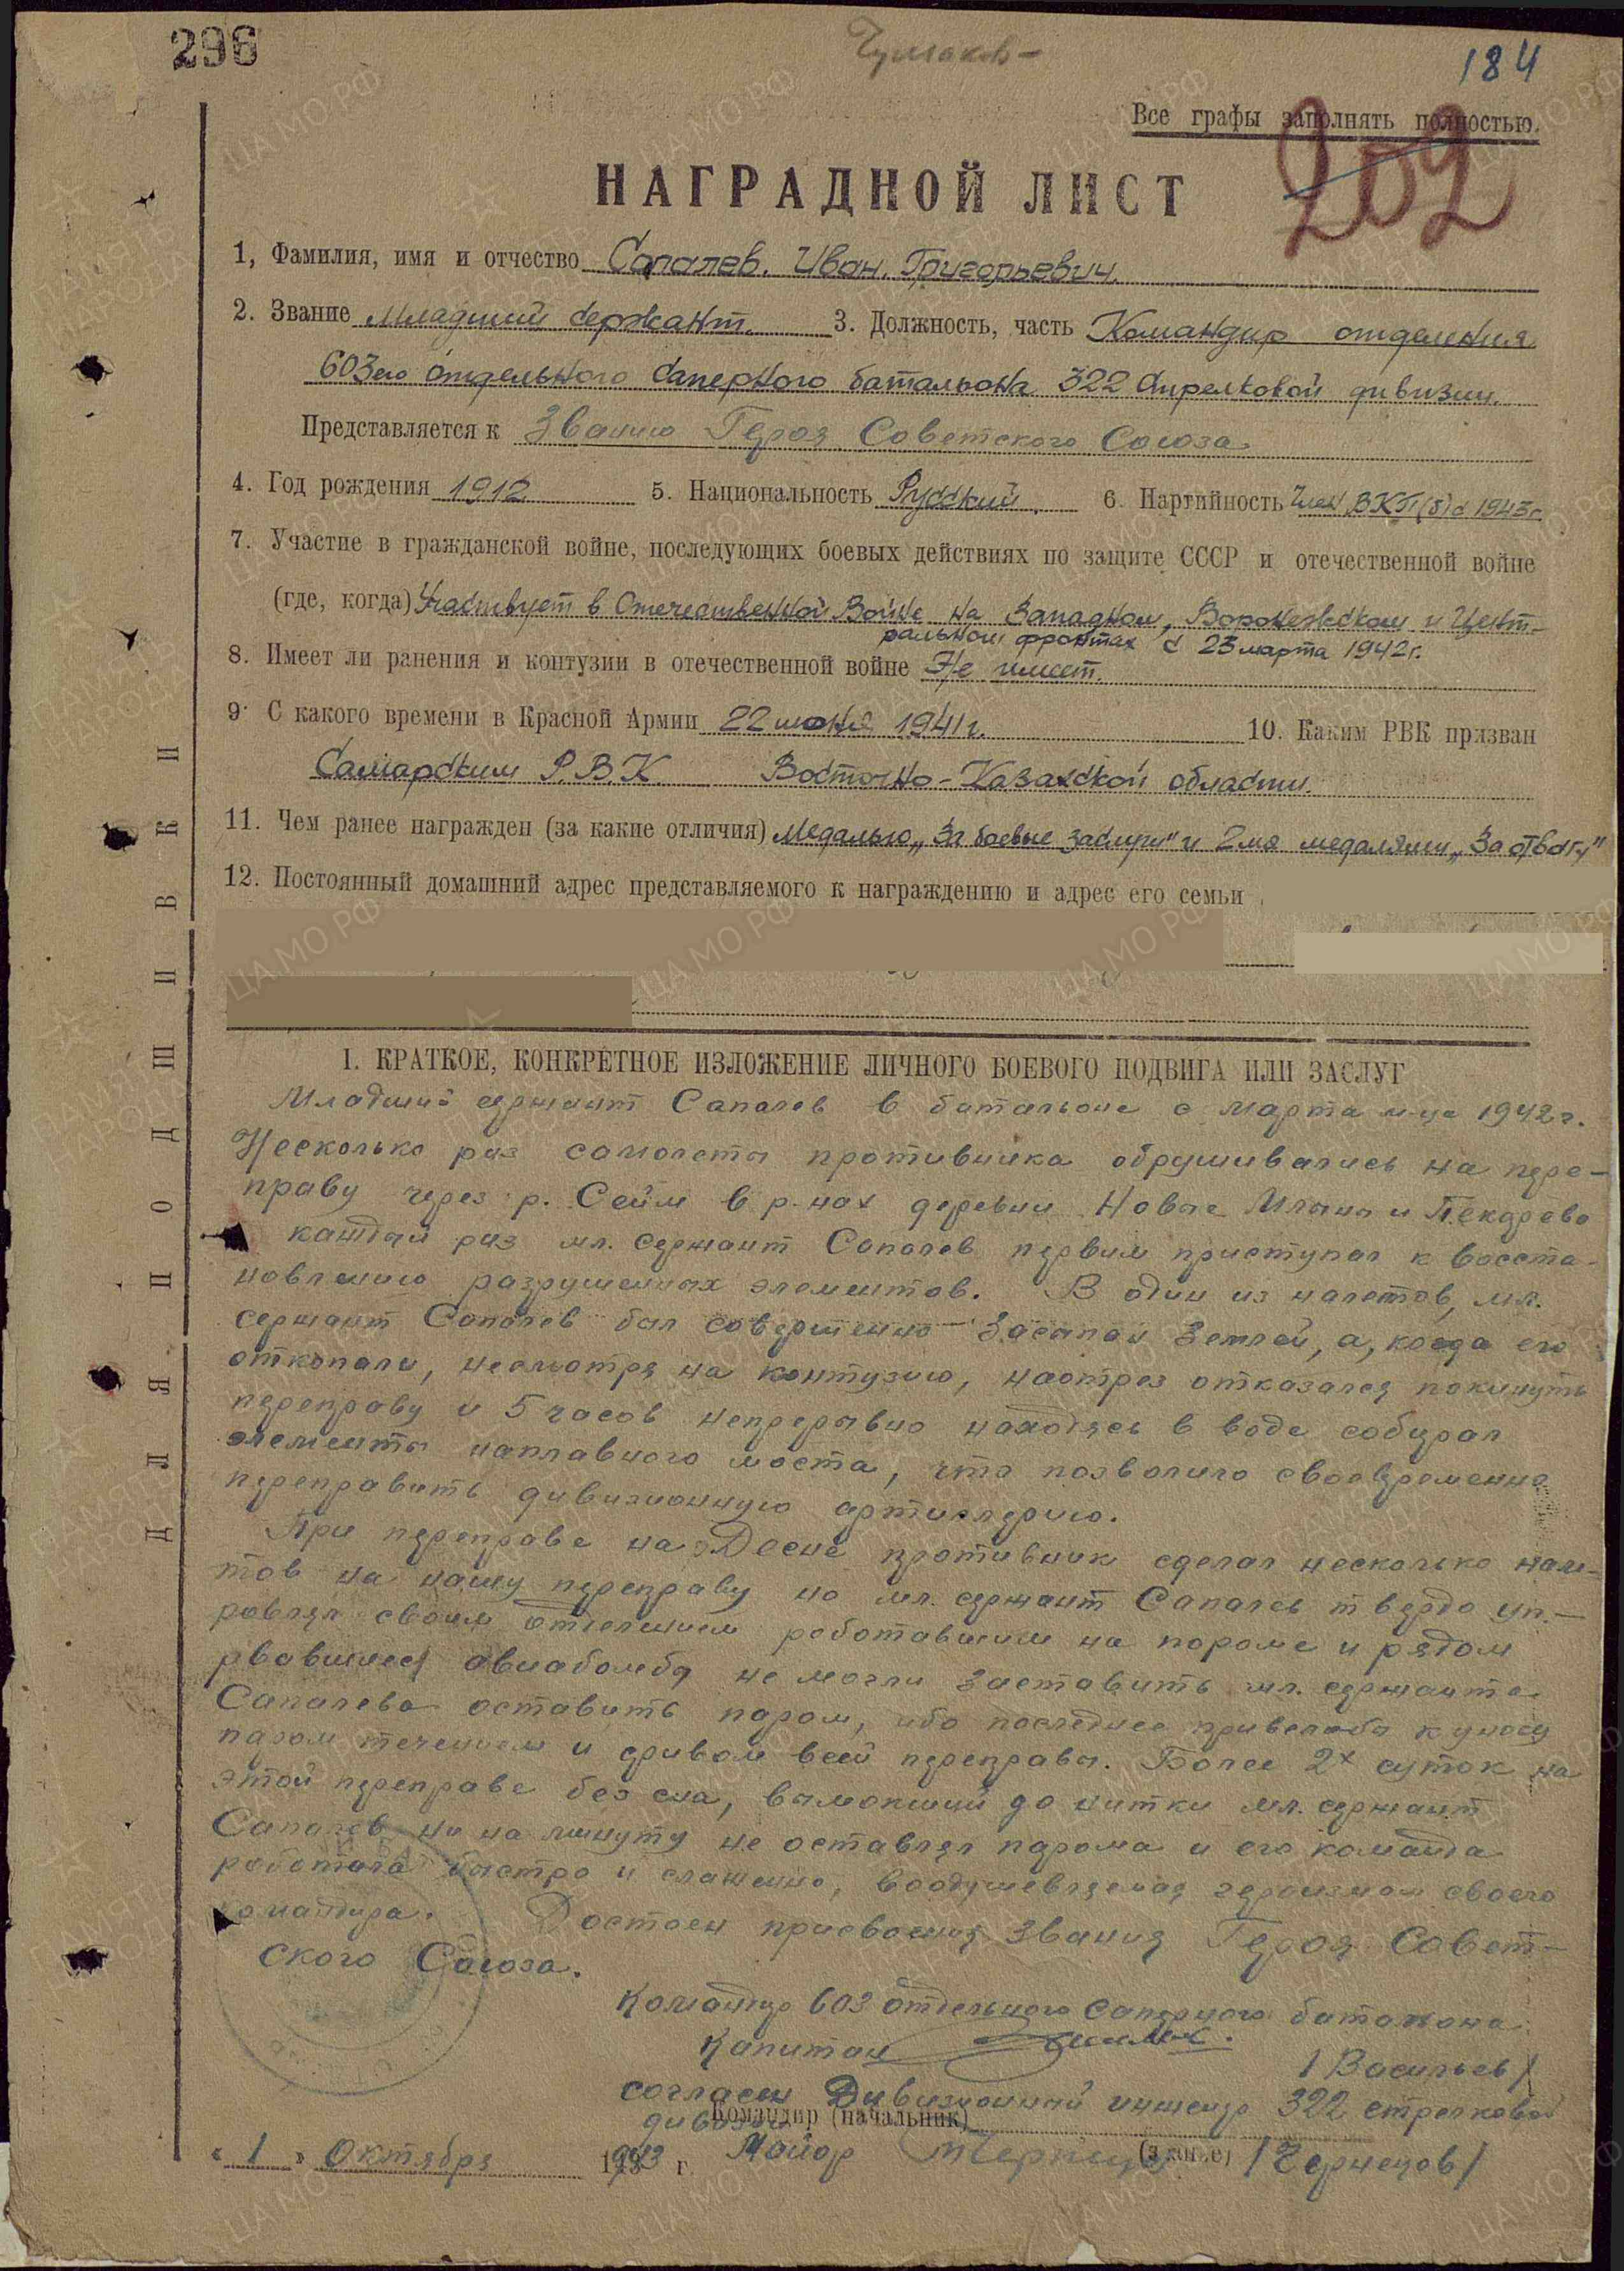 296
Чумаков-
184
Все графы заполнять полностью.
202
НАГРАДНОЙ ЛИСТ
1, Фамилия, имя и отчество Сапалев. Иван. Григорьевич.
2. Звание Младший сержант. 3. Должность, часть Командир отделения
603его отдельного саперного батальона 322 стрелковой дивизии.
Представляется к званию Героя Советского Союза.
4. Год рождения 1912 5. Национальность Русский. 6. Партийность Член ВКП(б) с 1943г
7. Участие в гражданской войне, последующих боевых действиях по защите СССР и отечественной войне
(где, когда) Участвует в Отечественной Войне на Западном, Воронежском и Цент-
ральном фронтах с 23 марта 1942г.
8. Имеет ли ранения и контузии в отечественной войне Не имеет.
9. С какого времени в Красной Армии 22 июня 1941г. 10. Каким РВК призван
Самарским Р.В.К. Восточно-Казахской области.
11. Чем ранее награжден (за какие отличия) Медалью „За боевые заслуги" и 2мя медалями „За отвагу"
12. Постоянный домашний адрес представляемого к награждению и адрес его семьи
ДЛЯ ПОДШИВКИ
I. КРАТКОЕ, КОНКРЕТНОЕ ИЗЛОЖЕНИЕ ЛИЧНОГО БОЕВОГО ПОДВИГА ИЛИ ЗАСЛУГ
Младший сержант Сапалев в батальоне с марта м-ца 1942г.
Несколько раз самолеты противника обрушивались на пере-
праву через р. Сейм в р-нах деревни Новые Млыны и Пекарево
каждый раз мл. сержант Сапалев первым приступал к восста-
новлению разрушенных элементов. В один из налетов, мл.
сержант Сапалев был совершенно засыпан землей, а, когда его
откопали, несмотря на контузию, наотрез отказался покинуть
переправу и 5 часов непрерывно находясь в воде собирал
элементы наплавного моста, что позволило своевременно
переправить дивизионную артиллерию.
При переправе на Десне противник сделал несколько нале-
тов на нашу переправу но мл. сержант Сапалев твердо уп-
равлял своим отделением работавшим на пароме и рядом
рвавшиеся авиабомбы не могли заставить мл. сержанта
Сапалева оставить паром, ибо последнее привело бы к уносу
паром течением и срывом всей переправы. Более 2х суток на
этой переправе без сна, вымокший до нитки мл. сержант
Сапалев ни на минуту не оставлял парома и его команда
работала быстро и слаженно, воодушевляемая героизмом своего
командира. Достоен присвоения звания Героя Совет-
ского Союза.
Командир 603 отдельного саперного батальона
Капитан /Васильев/
согласен Дивизионный инженер 322 стрелковой
дивизии Командир (начальник)
Майор (звание) /Чернецов/
„ 1 " Октября 1943 г.